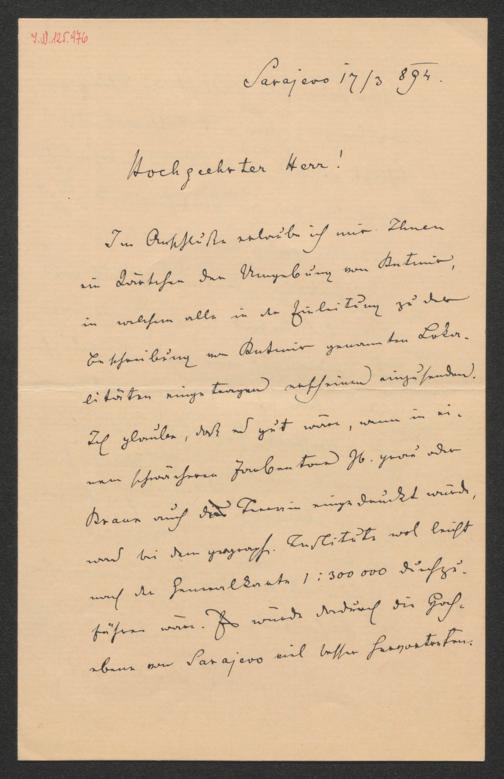 I.N. 125.476
Sarajevo 17/3 894.
Hochgeehrter Herr!
Im Anschluße erlaube ich mir Ihnen
ein Kärtchen der Umgebung von Butmir,
in welchem alle in der Einleitung zu der
Beschreibung von Butmir genannten Loka-
litäten eingetragen erscheinen einzusenden.
Ich glaube, daß es gut wäre, wenn in ei-
nem schwächeren Farbentone zb. grau oder
Braun auch das Terrain eingedruckt würde,
was bei dem geograph. Institute wol leicht
nach der Generalkarte 1:300 000 durchzu-
führen wäre. Es würde dadurch die Hoch-
ebene von Sarajevo viel besser hervortreten.